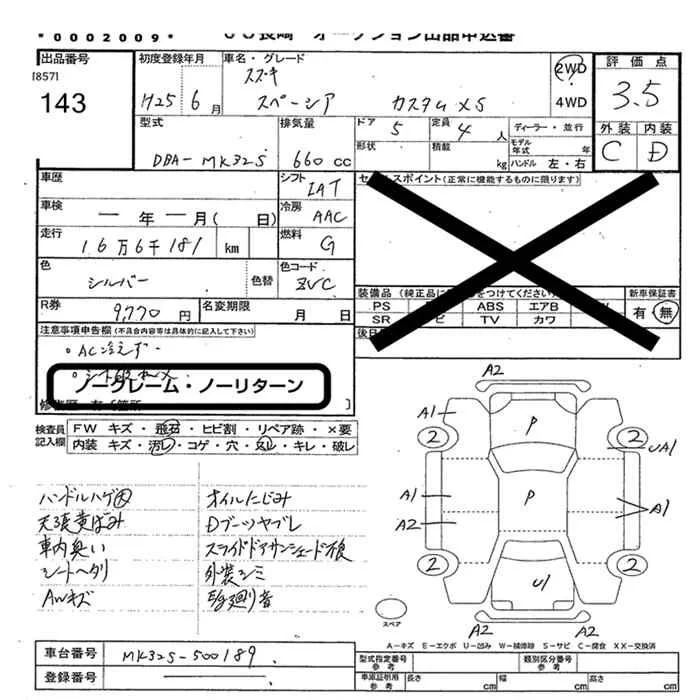 *0002009*
JU長崎 オークション出品申込書
出品番号 初度登録年月 車名・グレード 評価点
[857]
143
H25 6月 スズキ スペーシア カスタムXS
2WD
4WD
3.5
外装 内装
C D
型式 排気量 ドア 定員 ディーラー・並行
DBA-MK32S 660cc 5 4人
形状 積載 kg モデル年式 年
ハンドル 左・右
車歴 シフト IAT
セールスポイント(正常に機能するものに限ります)
車検 ー年ー月(日) 冷房 AAC
走行 16万6千181 km 燃料 G
色 シルバー 色替 色コード ZVC
装備品(純正品に をつけてください) 新車保証書
PS ABS エアB
SR TV カワ
有・無
後日
R券 9,770円 名変期限 月 日
注意事項申告欄(不具合内容等は具体的に記入して下さい)
。AC冷えず
ノークレーム・ノーリターン
検査員記入欄 FW キズ・飛石・ヒビ割・リペア跡・×要
内装 キズ・汚レ・コゲ・穴・スレ・キレ・破レ
ハンドルハゲ大 オイルにじみ
天張黄ばみ Dブーツヤブレ
車内臭い スライドドアサンシェード不良
シートヘタリ 外装シミ
AWキズ E/g廻り音
A2
A1 P
2 2
UA1
A1 P A1
A2
2 2
U1
A2 A2
スペア
A-キズ E-エクボ U-凹み W-補修跡 S-サビ C-腐食 XX-交換済
車台番号 MK32S-500189
登録番号
型式指定番号 参考 類別区分番号 参考
車庫証明用 参考 長さ cm 幅 cm 高さ cm